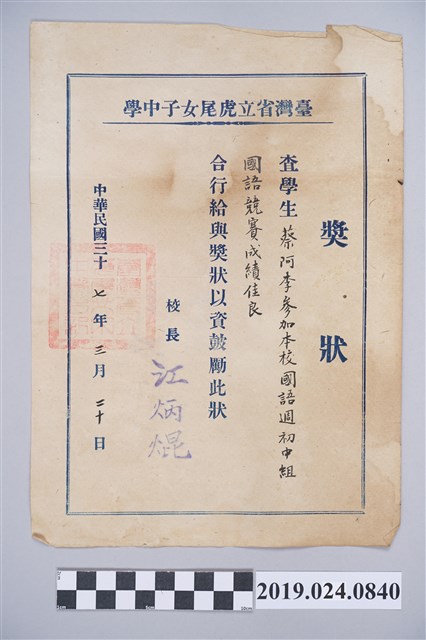 臺灣省立虎尾女子中學
獎狀
查學生蔡阿李參加本校國語週初中組
國語競賽成績佳良
合行給與獎狀以資鼓勵此狀
校長 江炳焜
中華民國三十七年三月二十日
2019.024.0840